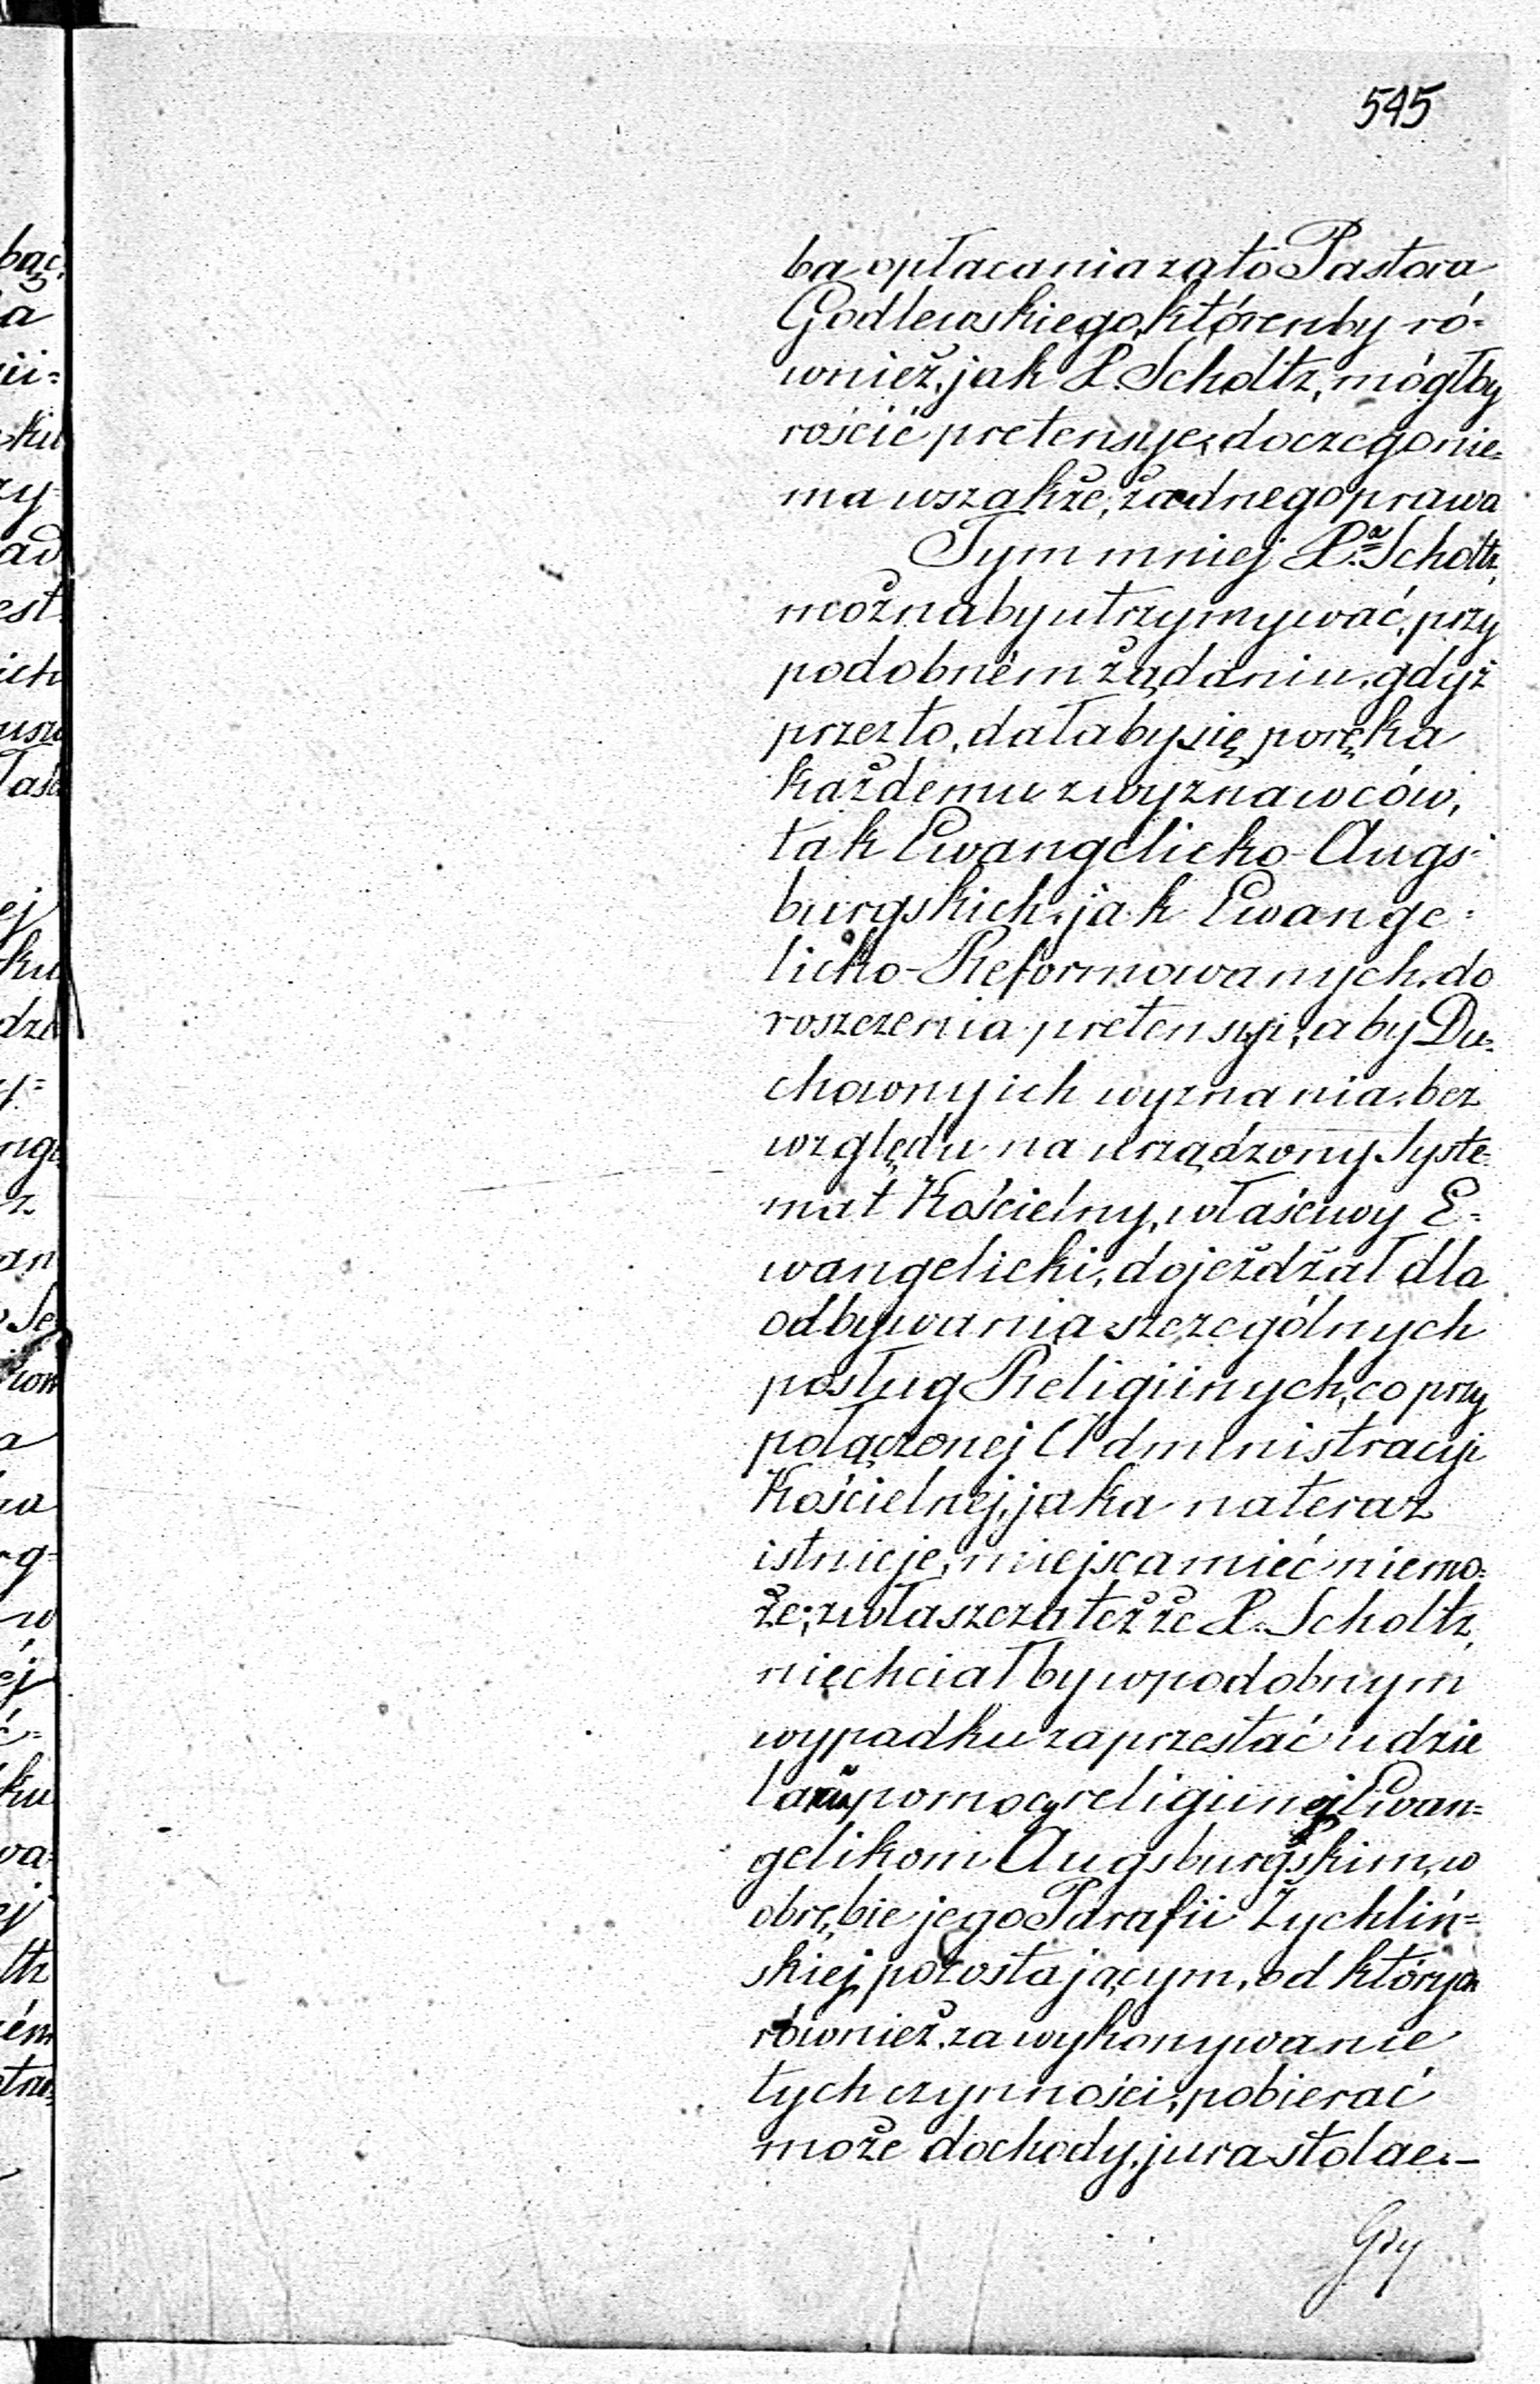 545
ba opłacania zato Pastora
Godlewskiego, którenby ró-
wnież, jak P. Scholtz, mógłby
rościć pretensye, doczego nie-
ma wszakże, żadnego prawa
Tym mniej P.ª Scholtz,
możnaby utrzymywać, przy
podobném żądaniu, gdyż
przezto, dałaby się poręka
każdemu zwyznawców,
tak Ewangelicko-Augs-
burgskich, jak Ewange-
licko-Reformowanych, do
roszczenia pretensyi, aby Du-
chowny ich wyznania, bez
względu na urządzony Syste-
mat Kościelny, właściwy E-
wangelicki, dojeżdżał dla
odbywania szczególnych
posług Religiinych, co przy
połączonej Administracyi
Kościelnej, jaka nateraz
istnieje, miejsca mieć niemo-
że; zwłaszcza też że P. Scholtz,
niechciałby wpodobnym
wypadku zaprzestać udzie
pomocy religiinej Ewan-
gelikom Augsburgskim, w
obrębie jego Parafii Żychliń-
skiej pozostającym, od których
również, za wykonywanie
tych czynności, pobierać
może dochody, jura stolae.-
Gdy
bąc,
a
ku
zy-
ad
est
ich
ej
ku
y-
z
an
Se
a
g-
w
ej
ku
wa
tz
ém